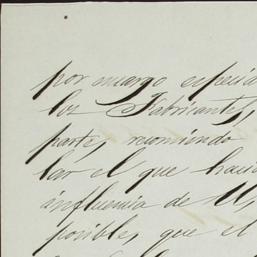 por encargo especia
los Fabricantes,
parte, reconiendo
lar el que hacia
influencia de U,
posibles, que el